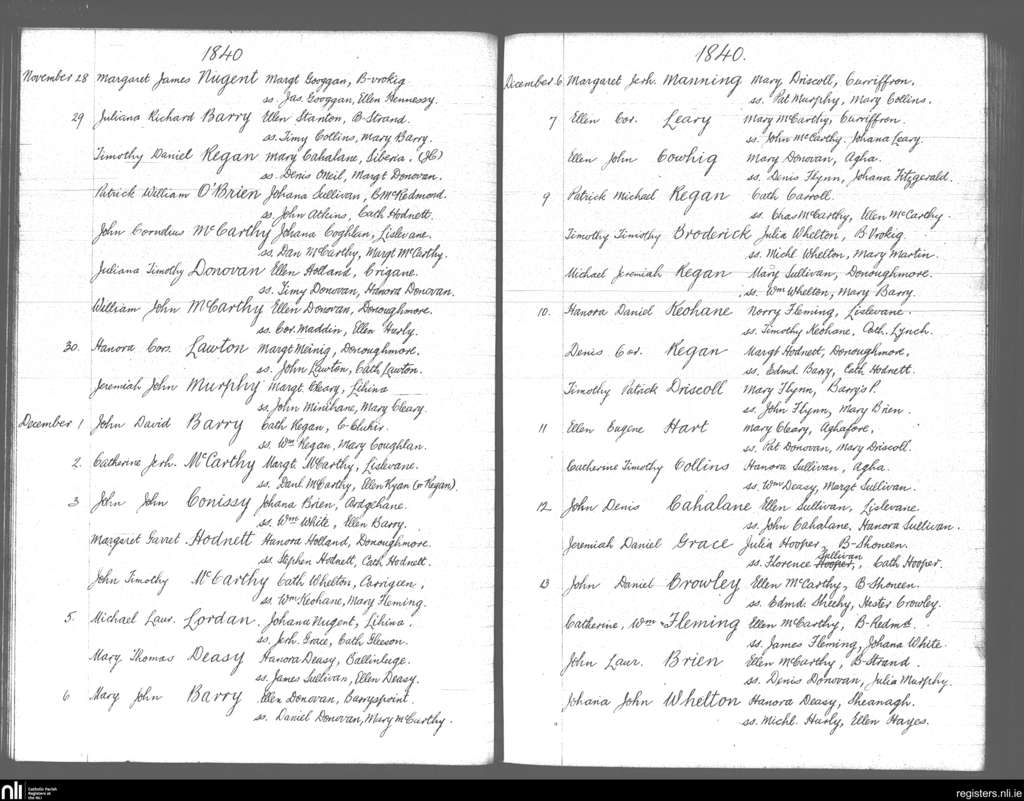 1840
November 28 Margaret James Nugent Margt Googgan, B-vrokig
ss. Jas. Googgan, Ellen Hennessy.
29 Juliana Richard Barry Ellen Stanton, B-Strand.
ss. Timy Collins, Mary Barry.
Timothy Daniel Regan Mary Cahalane, Siberia.
ss. Denis ONeil, Margt Donovan.
Patrick William O'Brien Johana Sullivan, BMcRedmond.
ss. John Atkins, Cath Hodnett.
John Cornelius McCarthy Johana Coghlan, Lislevane.
ss. Dan McCarthy, Margt McCarthy.
Juliana Timothy Donovan Ellen Holland, Crigane.
ss. Timy Donovan, Hanora Donovan.
William John McCarthy Ellen Donovan, Donoughmore.
ss. Cor. Maddin, Ellen Hurly.
30. Hanora Cors. Lawton Margt Meinig, Donoughmore.
ss. John Lawton, Cath Lawton.
Jeremiah John Murphy Margt. Cleary, Lihina
ss. John Minihane, Mary Cleary.
December 1 John David Barry Cath Regan,
ss. Wm Regan, Mary Coughlan.
2. Catherine Jerh. McCarthy Margt McCarthy, Lislevane.
ss. Danl McCarthy, Ellen Ryan (or Regan).
3 John John Conissy Johana Brien, Ardgehane.
ss. Wm White, Ellen Barry.
Margaret Garret Hodnett Hanora Holland, Donoughmore.
ss. Stephen Hodnett, Cath Hodnett.
John Timothy McCarthy Cath Whelton, Carrigeen,
ss. Wm Keohane, Mary Fleming.
5. Michael Laur. Lordan. Johana Nugent, Lihina.
ss. Jerh. Grace, Cath Gleeson.
Mary Thomas Deasy Hanora Deasy, Ballinluge.
ss. James Sullivan, Ellen Deasy.
6 Mary John Barry Ellen Donovan, Barryspoint.
ss. Daniel Donovan, Mary McCarthy.
1840.
December 6 Margaret Jerh. Manning Mary Driscoll, Curriffron.
ss. Pat Murphy, Mary Collins.
7 Ellen Cor. Leary Mary McCarthy, Curriffron.
ss. John McCarthy, Johana Leary.
Ellen John Cowhig Mary Donovan, Agha.
ss. Denis Flynn, Johana Fitzgerald.
9 Patrick Michael Regan Cath Carroll.
ss. Chas McCarthy, Ellen McCarthy.
Timothy Timothy Broderick Julia Whelton, B-Vrokig.
ss. Michl Whelton, Mary Martin.
Michael Jeremiah Regan Mary Sullivan, Donoughmore.
ss. Wm Whelton, Mary Barry.
10. Hanora Daniel Keohane Norry Fleming, Lislevane.
ss. Timothy Keohane, Cath. Lynch.
Denis Cor. Regan Margt Hodnett, Donoughmore,
ss. Edmd. Barry, Cath Hodnett.
Timothy Patrick Driscoll Mary Flynn, Barry's P.
ss. John Flynn, Mary Brien.
11 Ellen Eugene Hart Mary Cleary, Aghafore,
ss. Pat Donovan, Mary Driscoll.
Catherine Timothy Collins Hanora Sullivan, Agha.
ss. Wm Deasy, Margt Sullivan.
12 John Denis Cahalane Ellen Sullivan, Lislevane
ss. John Cahalane, Hanora Sullivan.
Jeremiah Daniel Grace Julia Hooper, B-Shoneen.
ss. Florence Hooper, Sullivan, Cath Hooper.
13 John Daniel Crowley Ellen McCarthy, B-Shoneen.
ss. Edmd. Sheehy, Hester Crowley.
Catherine, Wm Fleming Ellen McCarthy, B-Redmd.
ss. James Fleming, Johana White.
John Laur. Brien Ellen McCarthy, B-Strand.
ss. Denis Donovan, Julia Murphy.
Johana John Whelton Hanora Deasy, Sheanagh.
ss. Michl. Hurly, Ellen Hayes.
nli
Catholic Parish
Registers at
the NLI
registers.nli.ie